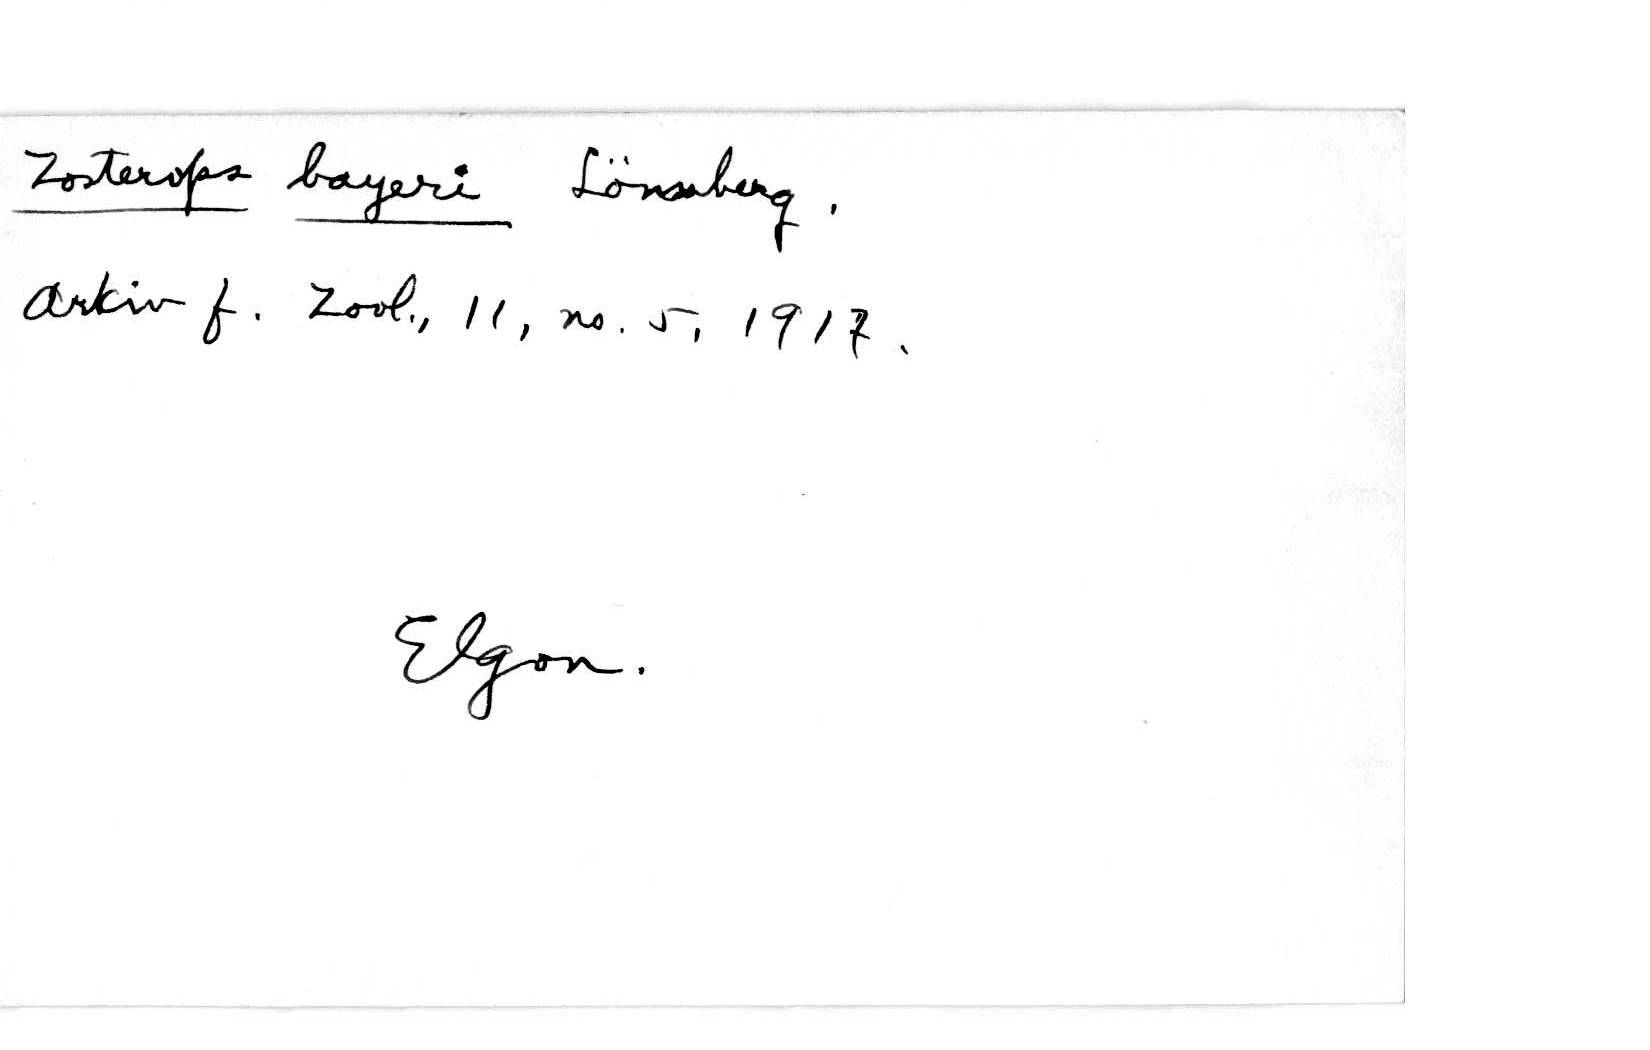 Zosterops bayeri Lönnberg.
Arkiv f. Zool., 11, no. 5, 1917.
Elgon.